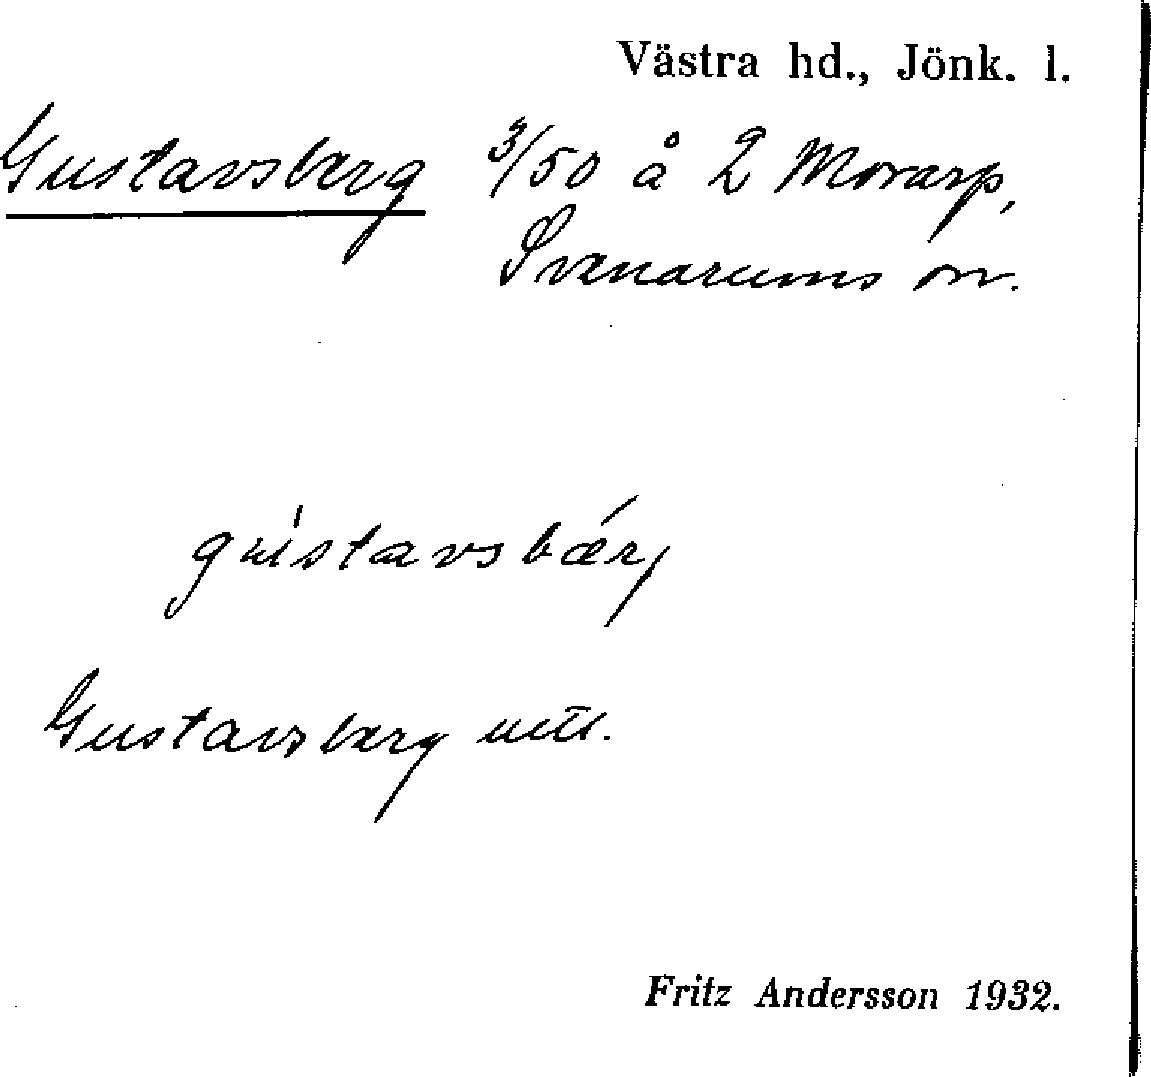 Västra hd., Jönk. l.
Gustavsberg 3/50 å 2 Morarp,
Svenarums sn.
gústavsbǽrj
Gustavsberg utt.
Fritz Andersson 1932.